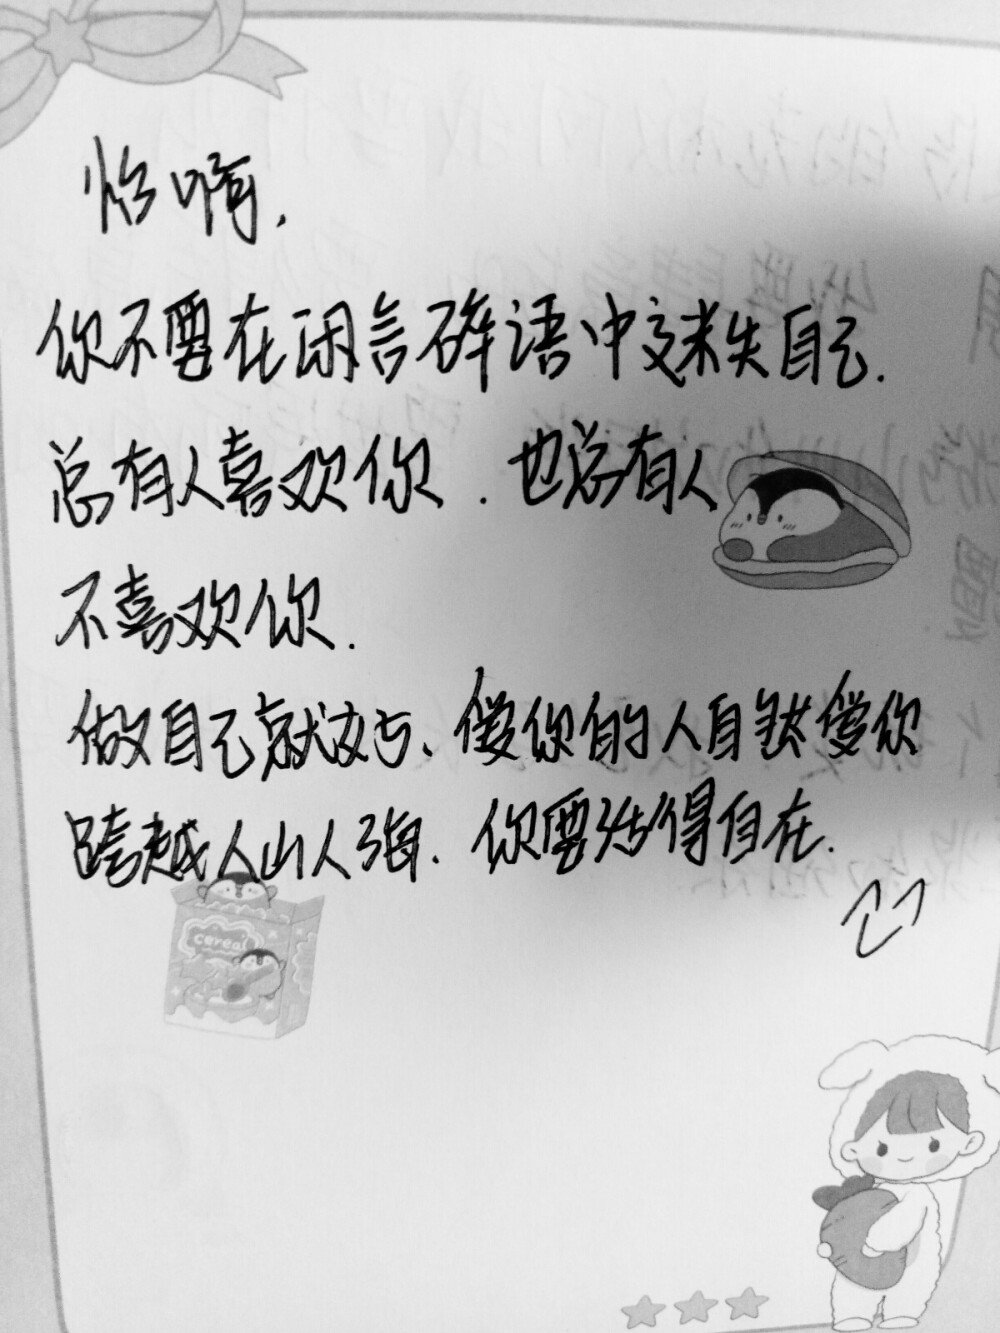 怡啊，
你不要在闲言碎语中迷失自己.
总有人喜欢你.也总有人
不喜欢你.
做自己就好、爱你的人自然爱你
跨越人山人海.你要活得自在.
cereal